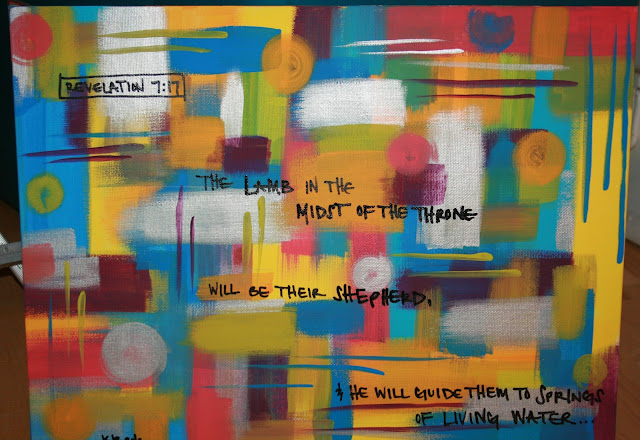 REVELATION 7:17
THE LAMB IN THE
MIDST OF THE THRONE
WILL BE THEIR SHEPHERD,
& HE WILL GUIDE THEM TO SPRINGS
OF LIVING WATER...